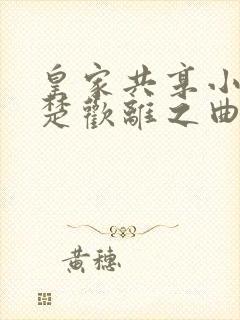 皇家共享小
楚歡離之曲
黃穗